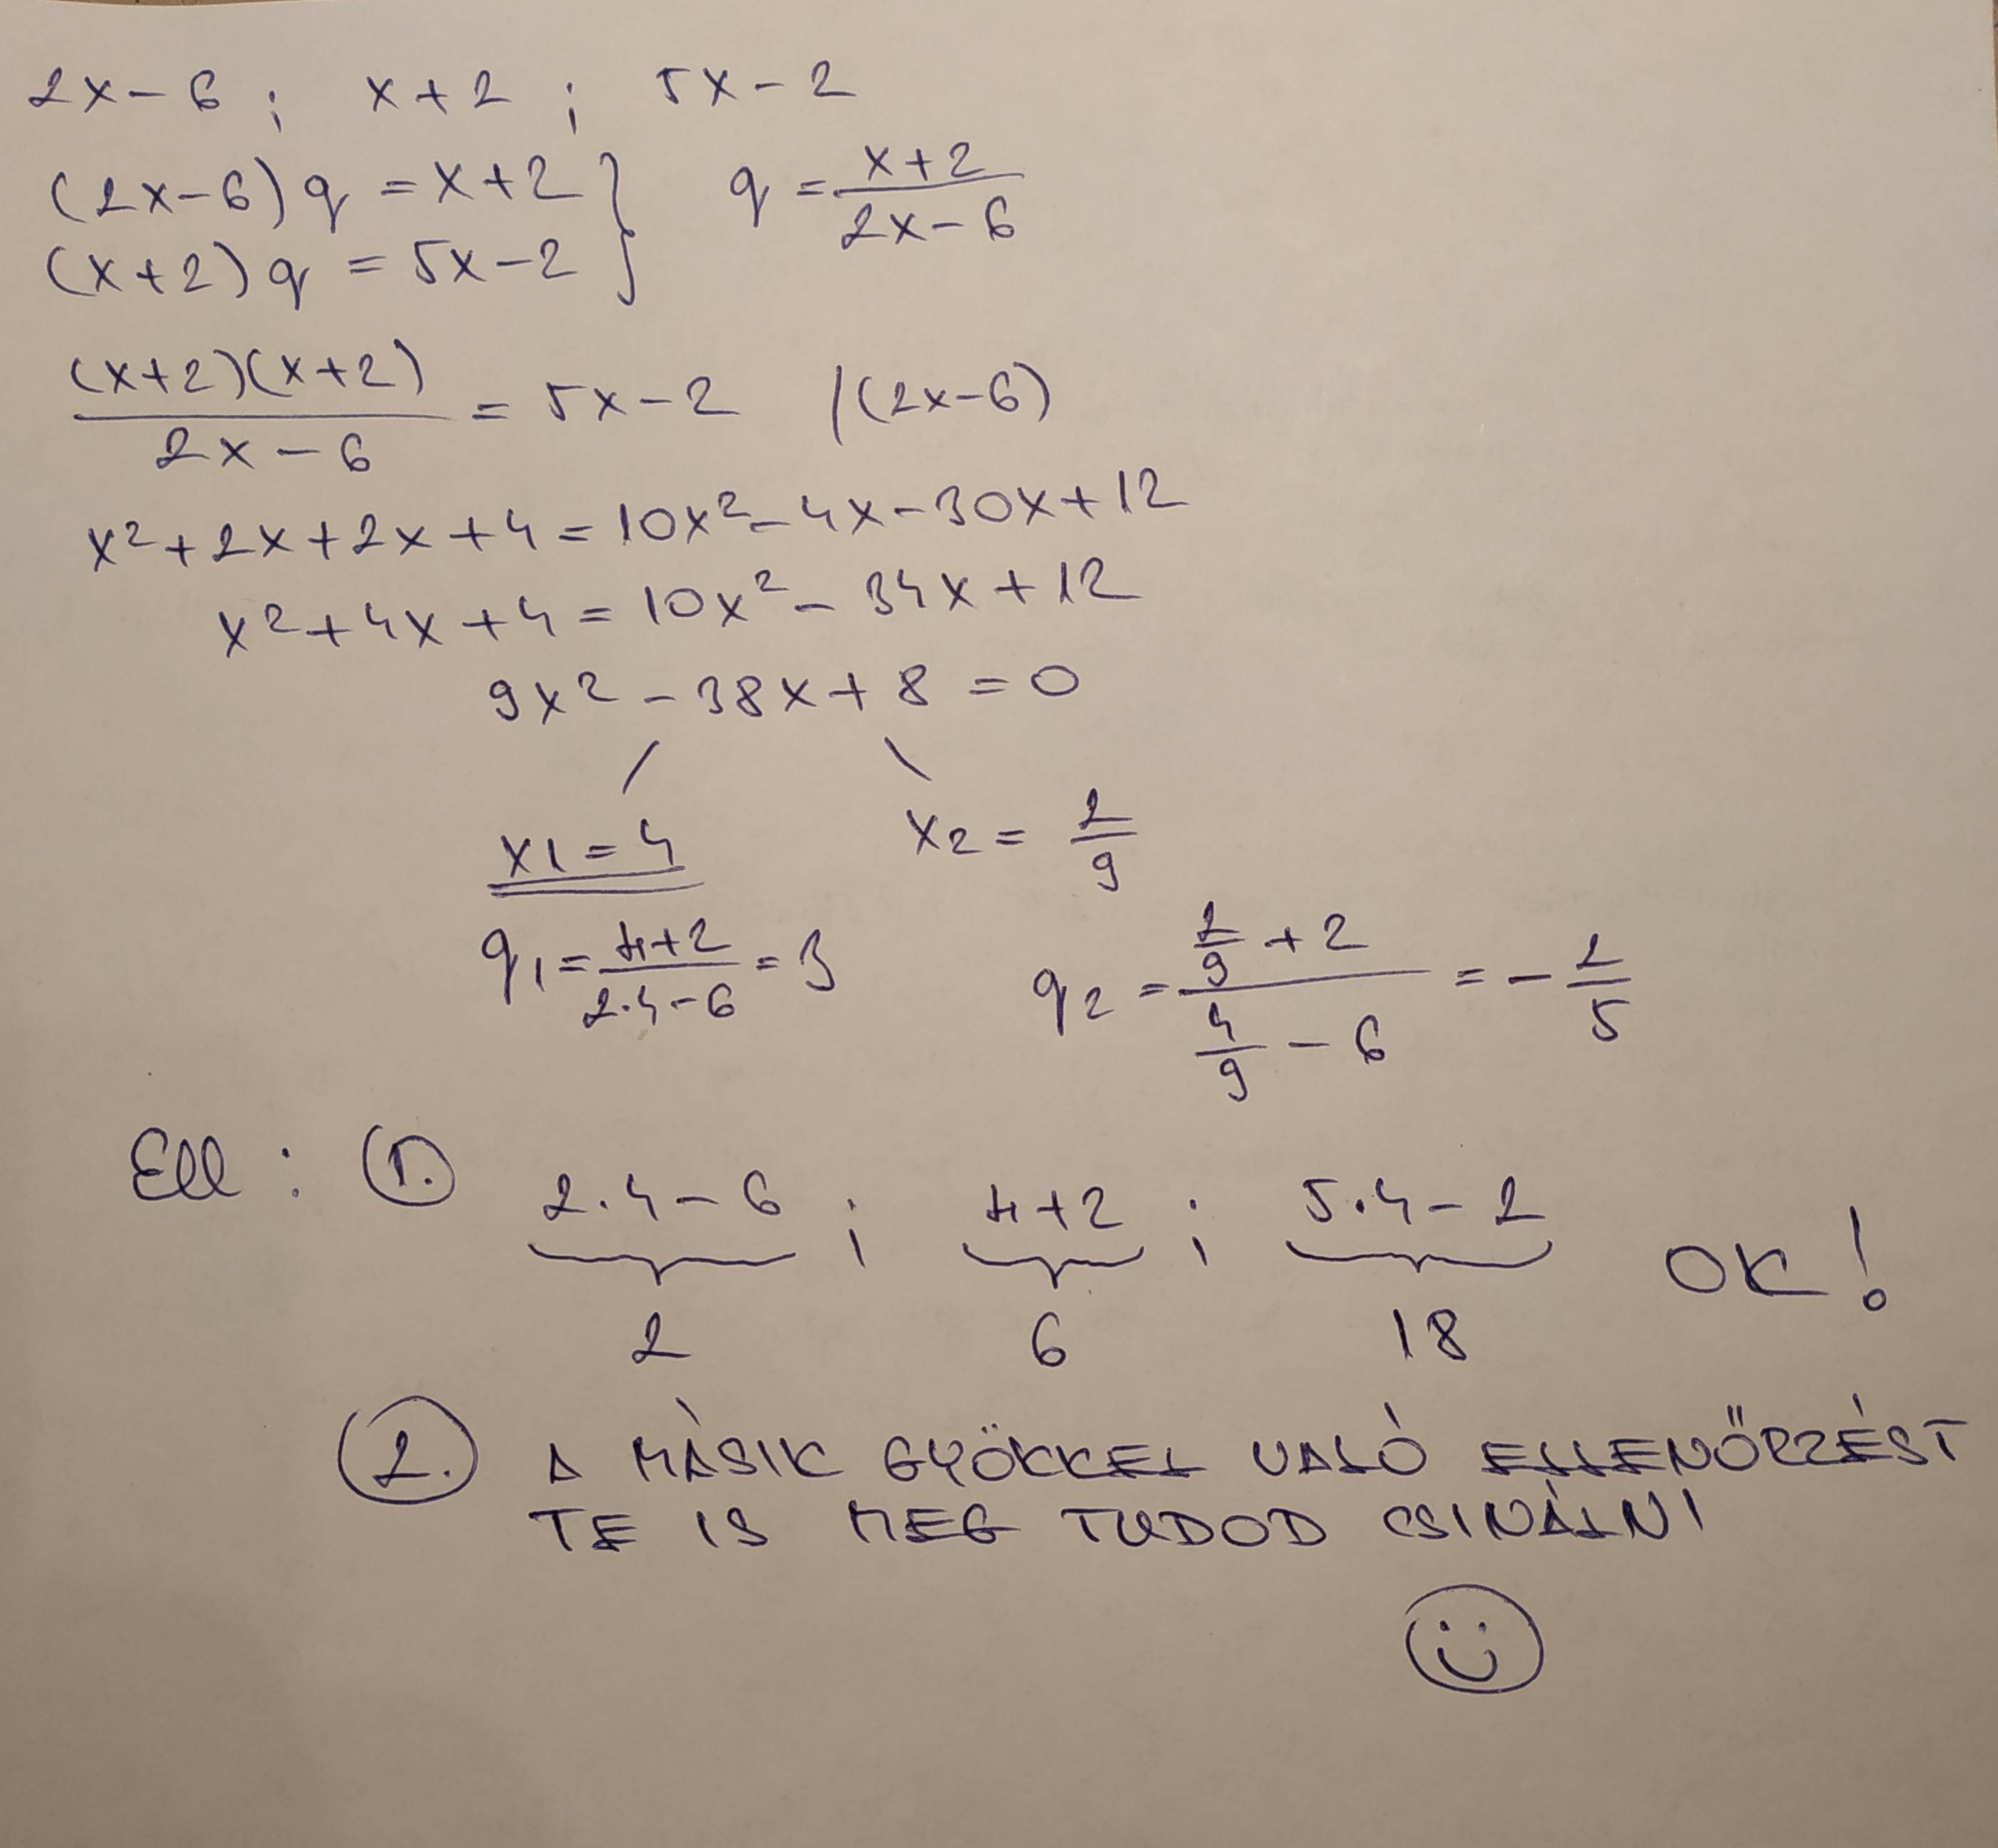 2x-6 ; x+2 ; 5x-2
(2x-6) q = x+2 } q = (x+2)/(2x-6)
(x+2) q = 5x-2
(x+2)(x+2)/(2x-6) = 5x-2 /(2x-6)
x²+2x+2x+4 = 10x²-4x-30x+12
x²+4x+4 = 10x²-34x+12
9x²-38x+8 = 0
x1 = 4 x2 = 2/9
q1 = (4+2)/(2·4-6) = 3 q2 = (2/9+2)/(4/9-6) = -2/5
Ell : 1. 2·4-6 ; 4+2 ; 5·4-2 OK!
2 6 18
2. A MÁSIK GYÖKKEL VALÓ ELLENŐRZÉST
TE IS MEG TUDOD CSINÁLNI